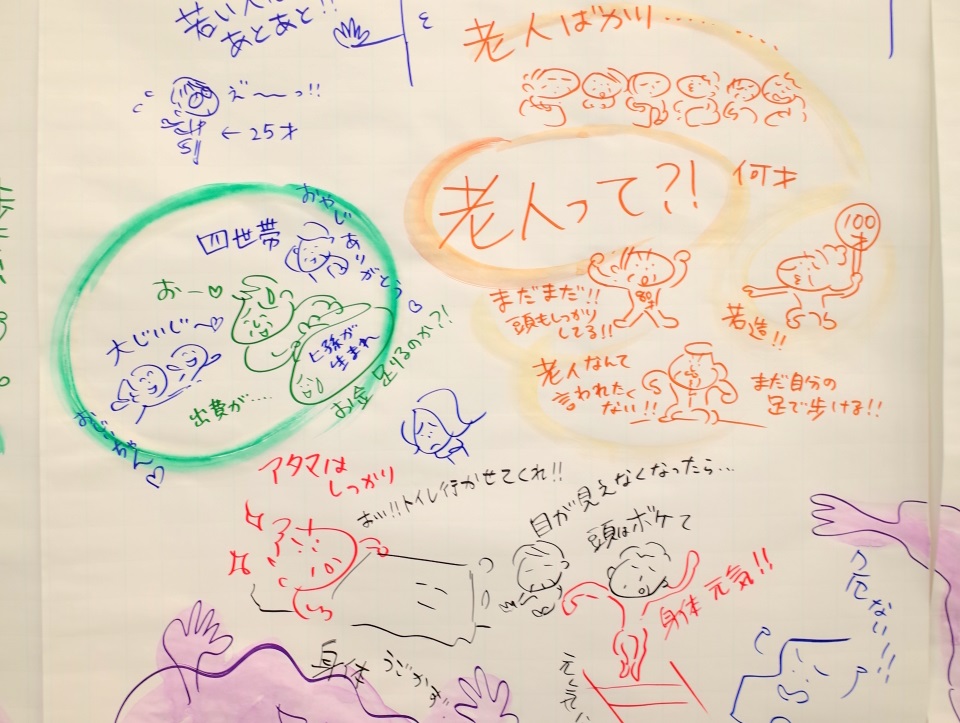 若い人は
あとあと!!
え〜〜っ!!
←25才
老人ばかり……
老人って?!
何才
100才
まだまだ!!
頭もしっかり
してる!!
若造!!
老人なんて
言われたく
ない!!
まだ自分の
足で歩ける!!
四世帯
おやじ
ありがとう
おー♡
大じいじ〜♡
ヒ孫が
生まれ
出費が‥‥
お金足りるのか?!
おじいちゃん♡
アタマは
しっかり
おい!!トイレ行かせてくれ!!
目が見えなくなったら…
頭はボケて
身体元気!!
身体うごかず